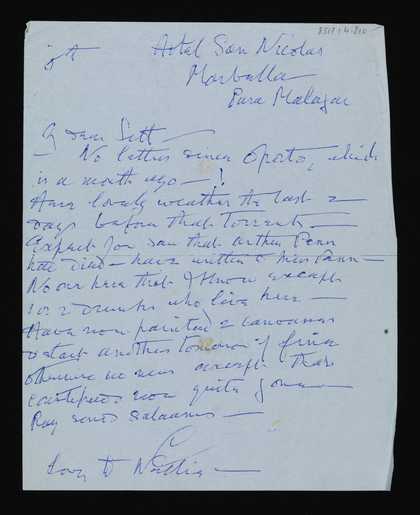 8517/4/820
10th
Hotel San Nicolas
Marbella
Para Malaga
My dear Sett —
— No letters since Oporto, which
is a month ago — !
Have lovely weather the last 2
days before that torrents —
Expect you saw that Arthur Penn
had died — have written to Miss Penn —
No one here that I know except
1 or 2 drunks who live here —
Have now painted 2 canvases
& start another tomorrow if fine
otherwise no news except that
now quite gone —
Ray sends salaams —
Love to